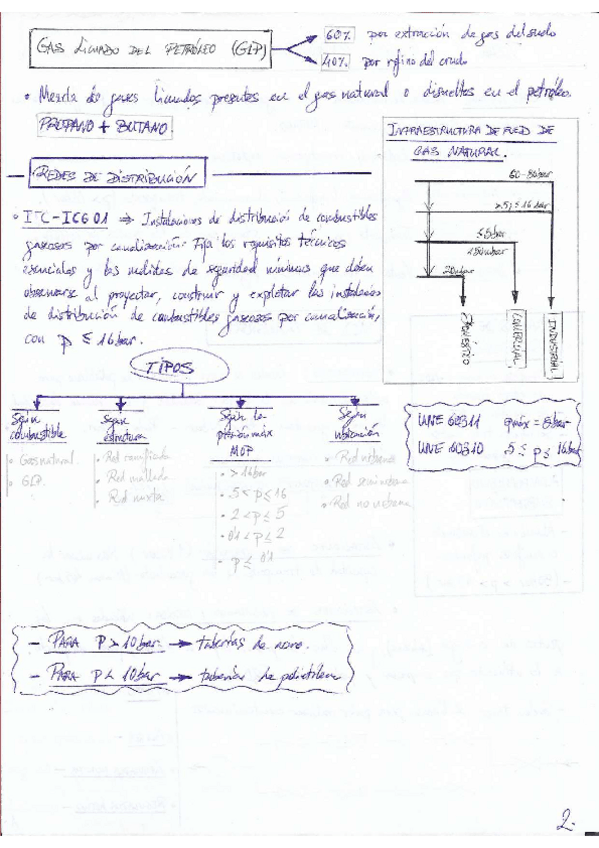 GAS LICUADO DEL PETRÓLEO (GLP)
60% por extracción de gas del suelo
40% por refino del crudo
• Mezcla de gases licuados presentes en el gas natural o disueltos en el petróleo.
PROPANO + BUTANO.
INFRAESTRUCTURA DE RED DE
GAS NATURAL.
60-80bar
>5; ≤ 16 bar
≤5bar
<50mbar
20mbar
DOMÉSTICO
COMERCIAL
INDUSTRIAL
REDES DE DISTRIBUCIÓN
• ITC-ICG 01 ⇒ Instalaciones de distribución de combustibles
gaseosos por canalización. Fija los requisitos técnicos
esenciales y las medidas de seguridad mínimas que deben
observarse al proyectar, construir y explotar las instalaciones
de distribución de combustibles gaseosos por canalización,
con p ≤ 16 bar.
TIPOS
Según combustible
• Gas natural
• GLP.
Según estructura
• Red ramificada
• Red mallada
• Red mixta
Según la presión máx MOP
• > 16 bar
• 5 < p ≤ 16
• 2 < p ≤ 5
• 0'1 < p ≤ 2
• p ≤ 0'1
Según ubicación
• Red urbana
• Red semiurbana
• Red no urbana
UNE 60311 pmáx = 5bar
UNE 60310 5 ≤ p ≤ 16bar
- PARA P > 10 bar. → tuberías de acero.
- PARA P < 10 bar → tuberías de polietileno
2.